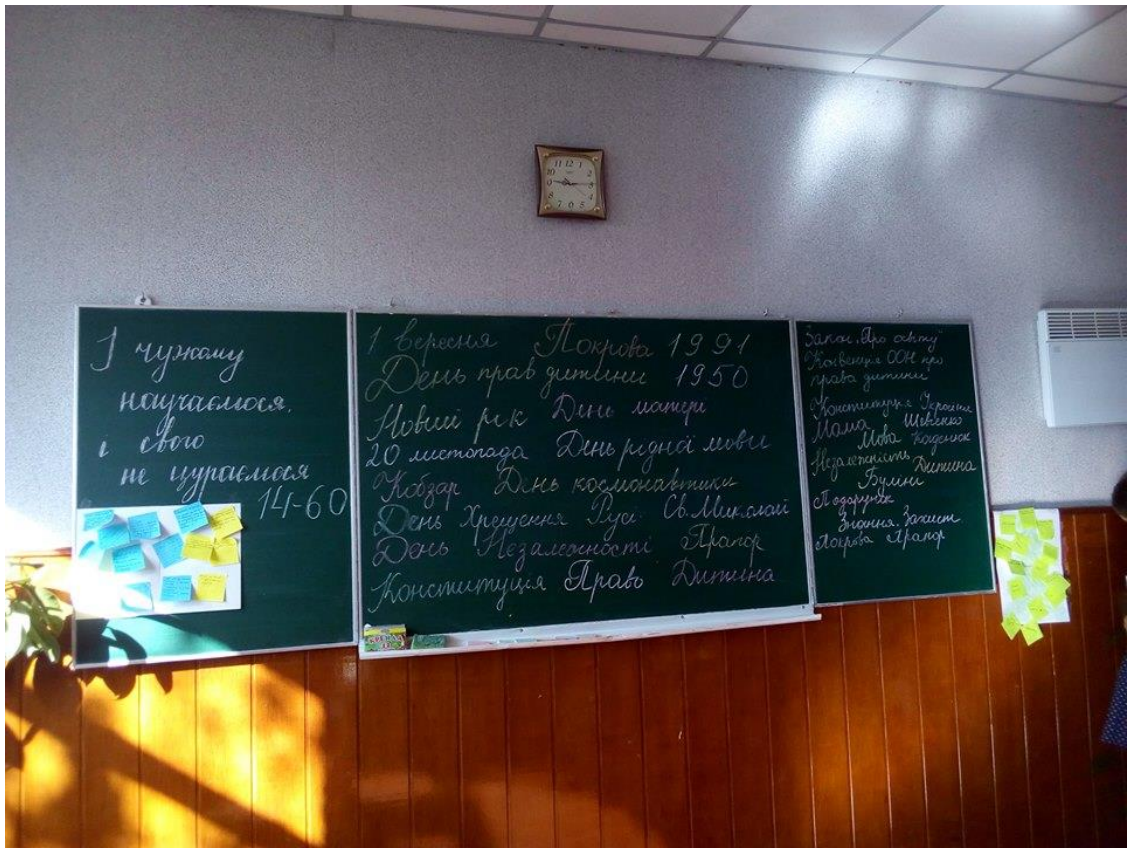 І чужому
научаємося,
і свого
не цураємося
14-60
1 вересня Покрова 1991
День прав дитини 1950
Новий рік День матері
20 листопада День рідної мови
Кобзар День космонавтики
День Хрещення Русі Св. Миколай
День Незалежності Прапор
Конституція Право Дитина
Закон „Про освіту"
Конвенція ООН про
права дитини"
Конституція України
Мама Шевченко
Мова Каденюк
Незалежність Дитина
Булінг
Подарунок
Знання. Захист
Покрова Прапор
11 12 1
10 2
9 3
8
7 6 5